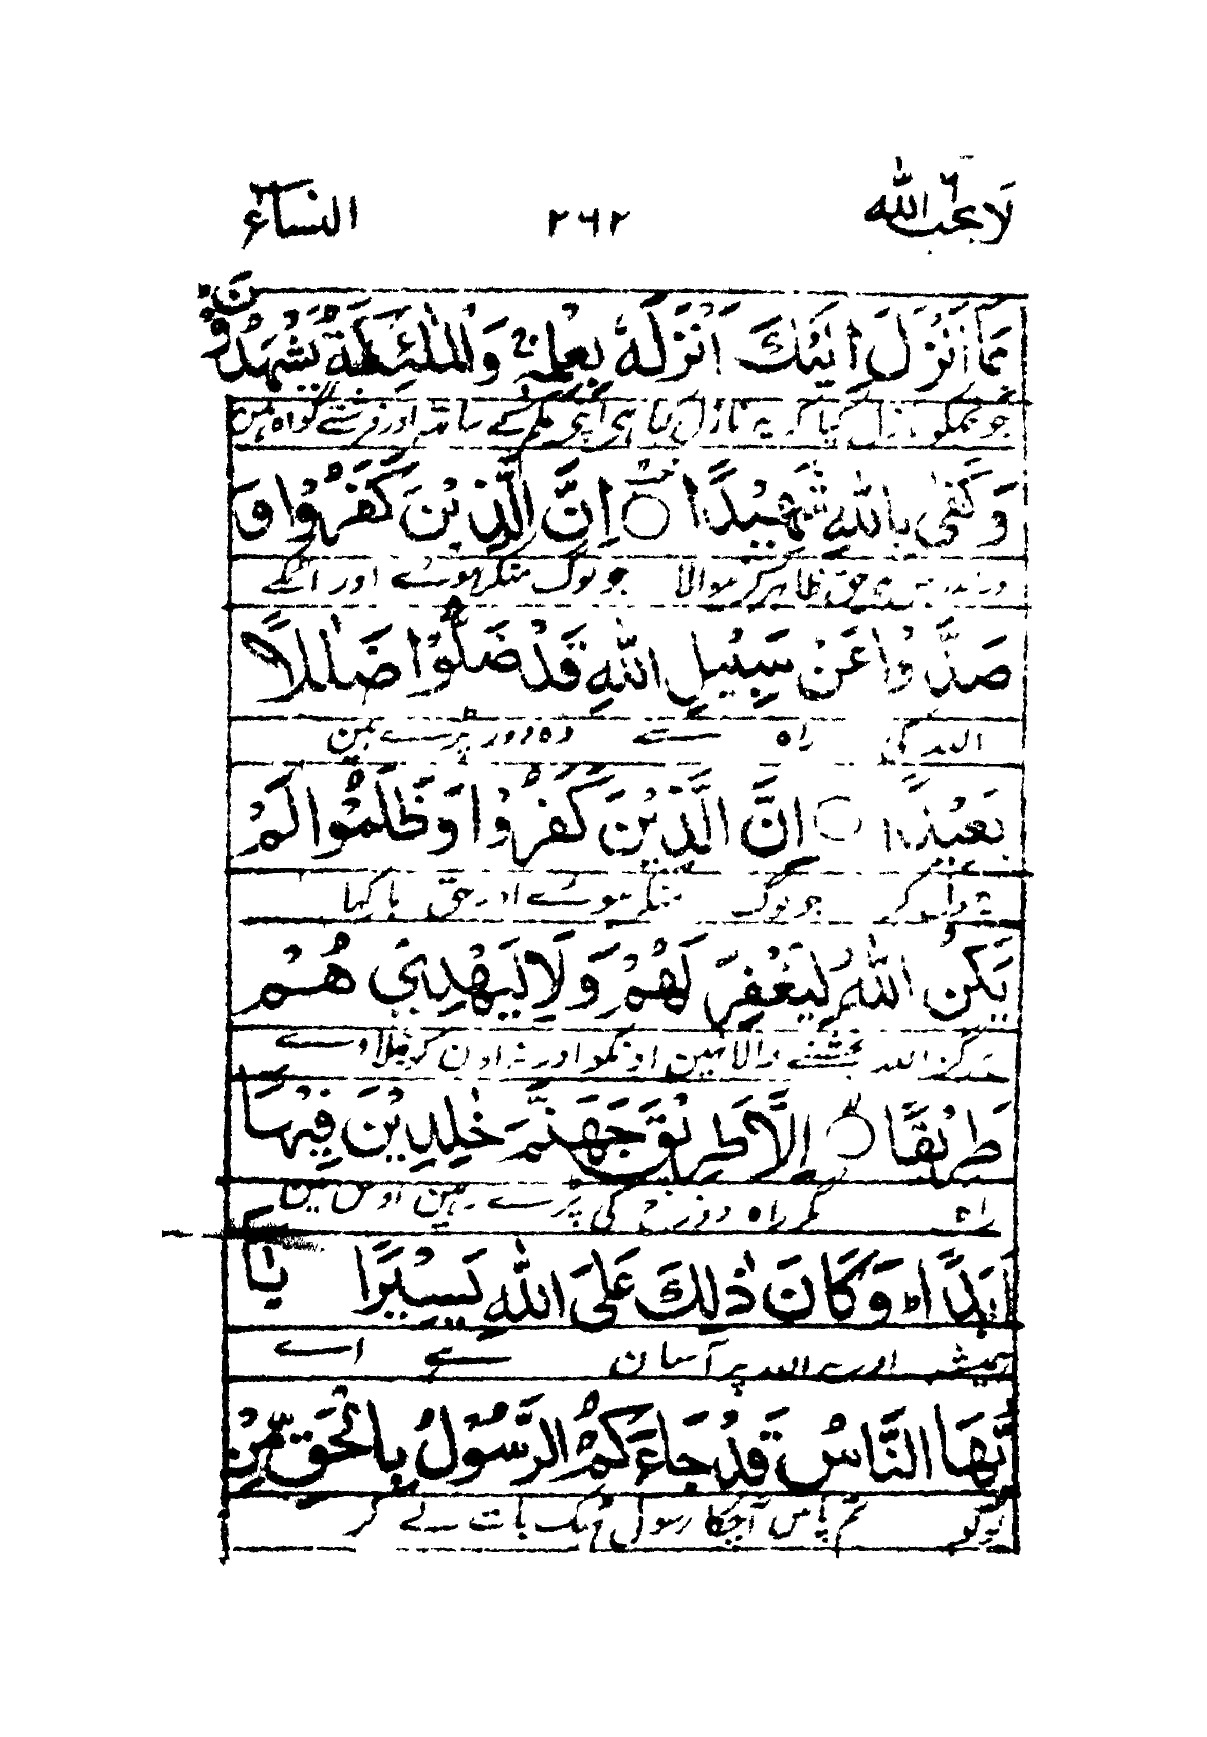 لا یحب الله ٦ ٢٦٢ النساء ٤
بِمَآ اَنْزَلَ اِلَیْكَ اَنْزَلَهٗ بِعِلْمِهٖ وَالْمَلٰٓئِكَةُ یَشْهَدُوْنَ ؕ
جو تجھکو نازل کیا کہ یہ نازل کیا ہی اپنی علم کے ساتھ اور فرشتے گواہ ہین
وَكَفٰی بِاللّٰهِ شَهِیْدًا ○ اِنَّ الَّذِیْنَ كَفَرُوْا وَ
حق ظاہر کرنیوالا جو لوگ منکر ہوئے اور اٹکے
صَدُّوْا عَنْ سَبِیْلِ اللّٰهِ قَدْ ضَلُّوْا ضَلٰلًا
اللہ کی راہ سے وہ دور پڑے ہین
بَعِیْدًا ○ اِنَّ الَّذِیْنَ كَفَرُوْا وَظَلَمُوْا لَمْ
جو لوگ منکر ہوئے اور حق با کہا
یَكُنِ اللّٰهُ لِیَغْفِرَ لَهُمْ وَلَا لِیَهْدِیَهُمْ
ہرگز اللہ بخشنے والا نہین اونکو اور نہ اون کو ملاوے
طَرِیْقًا ○ اِلَّا طَرِیْقَ جَهَنَّمَ خٰلِدِیْنَ فِیْهَآ
راہ مگر راہ دوزخ کی پڑے رہین اوس مین
اَبَدًا ؕ وَكَانَ ذٰلِكَ عَلَی اللّٰهِ یَسِیْرًا یٰٓا
ہمیشہ اور یہ اللہ پر آسان ہے اے
اَیُّهَا النَّاسُ قَدْ جَآءَكُمُ الرَّسُوْلُ بِالْحَقِّ مِنْ
لوگو تم پاس آچکا رسول ٹھیک بات لے کر